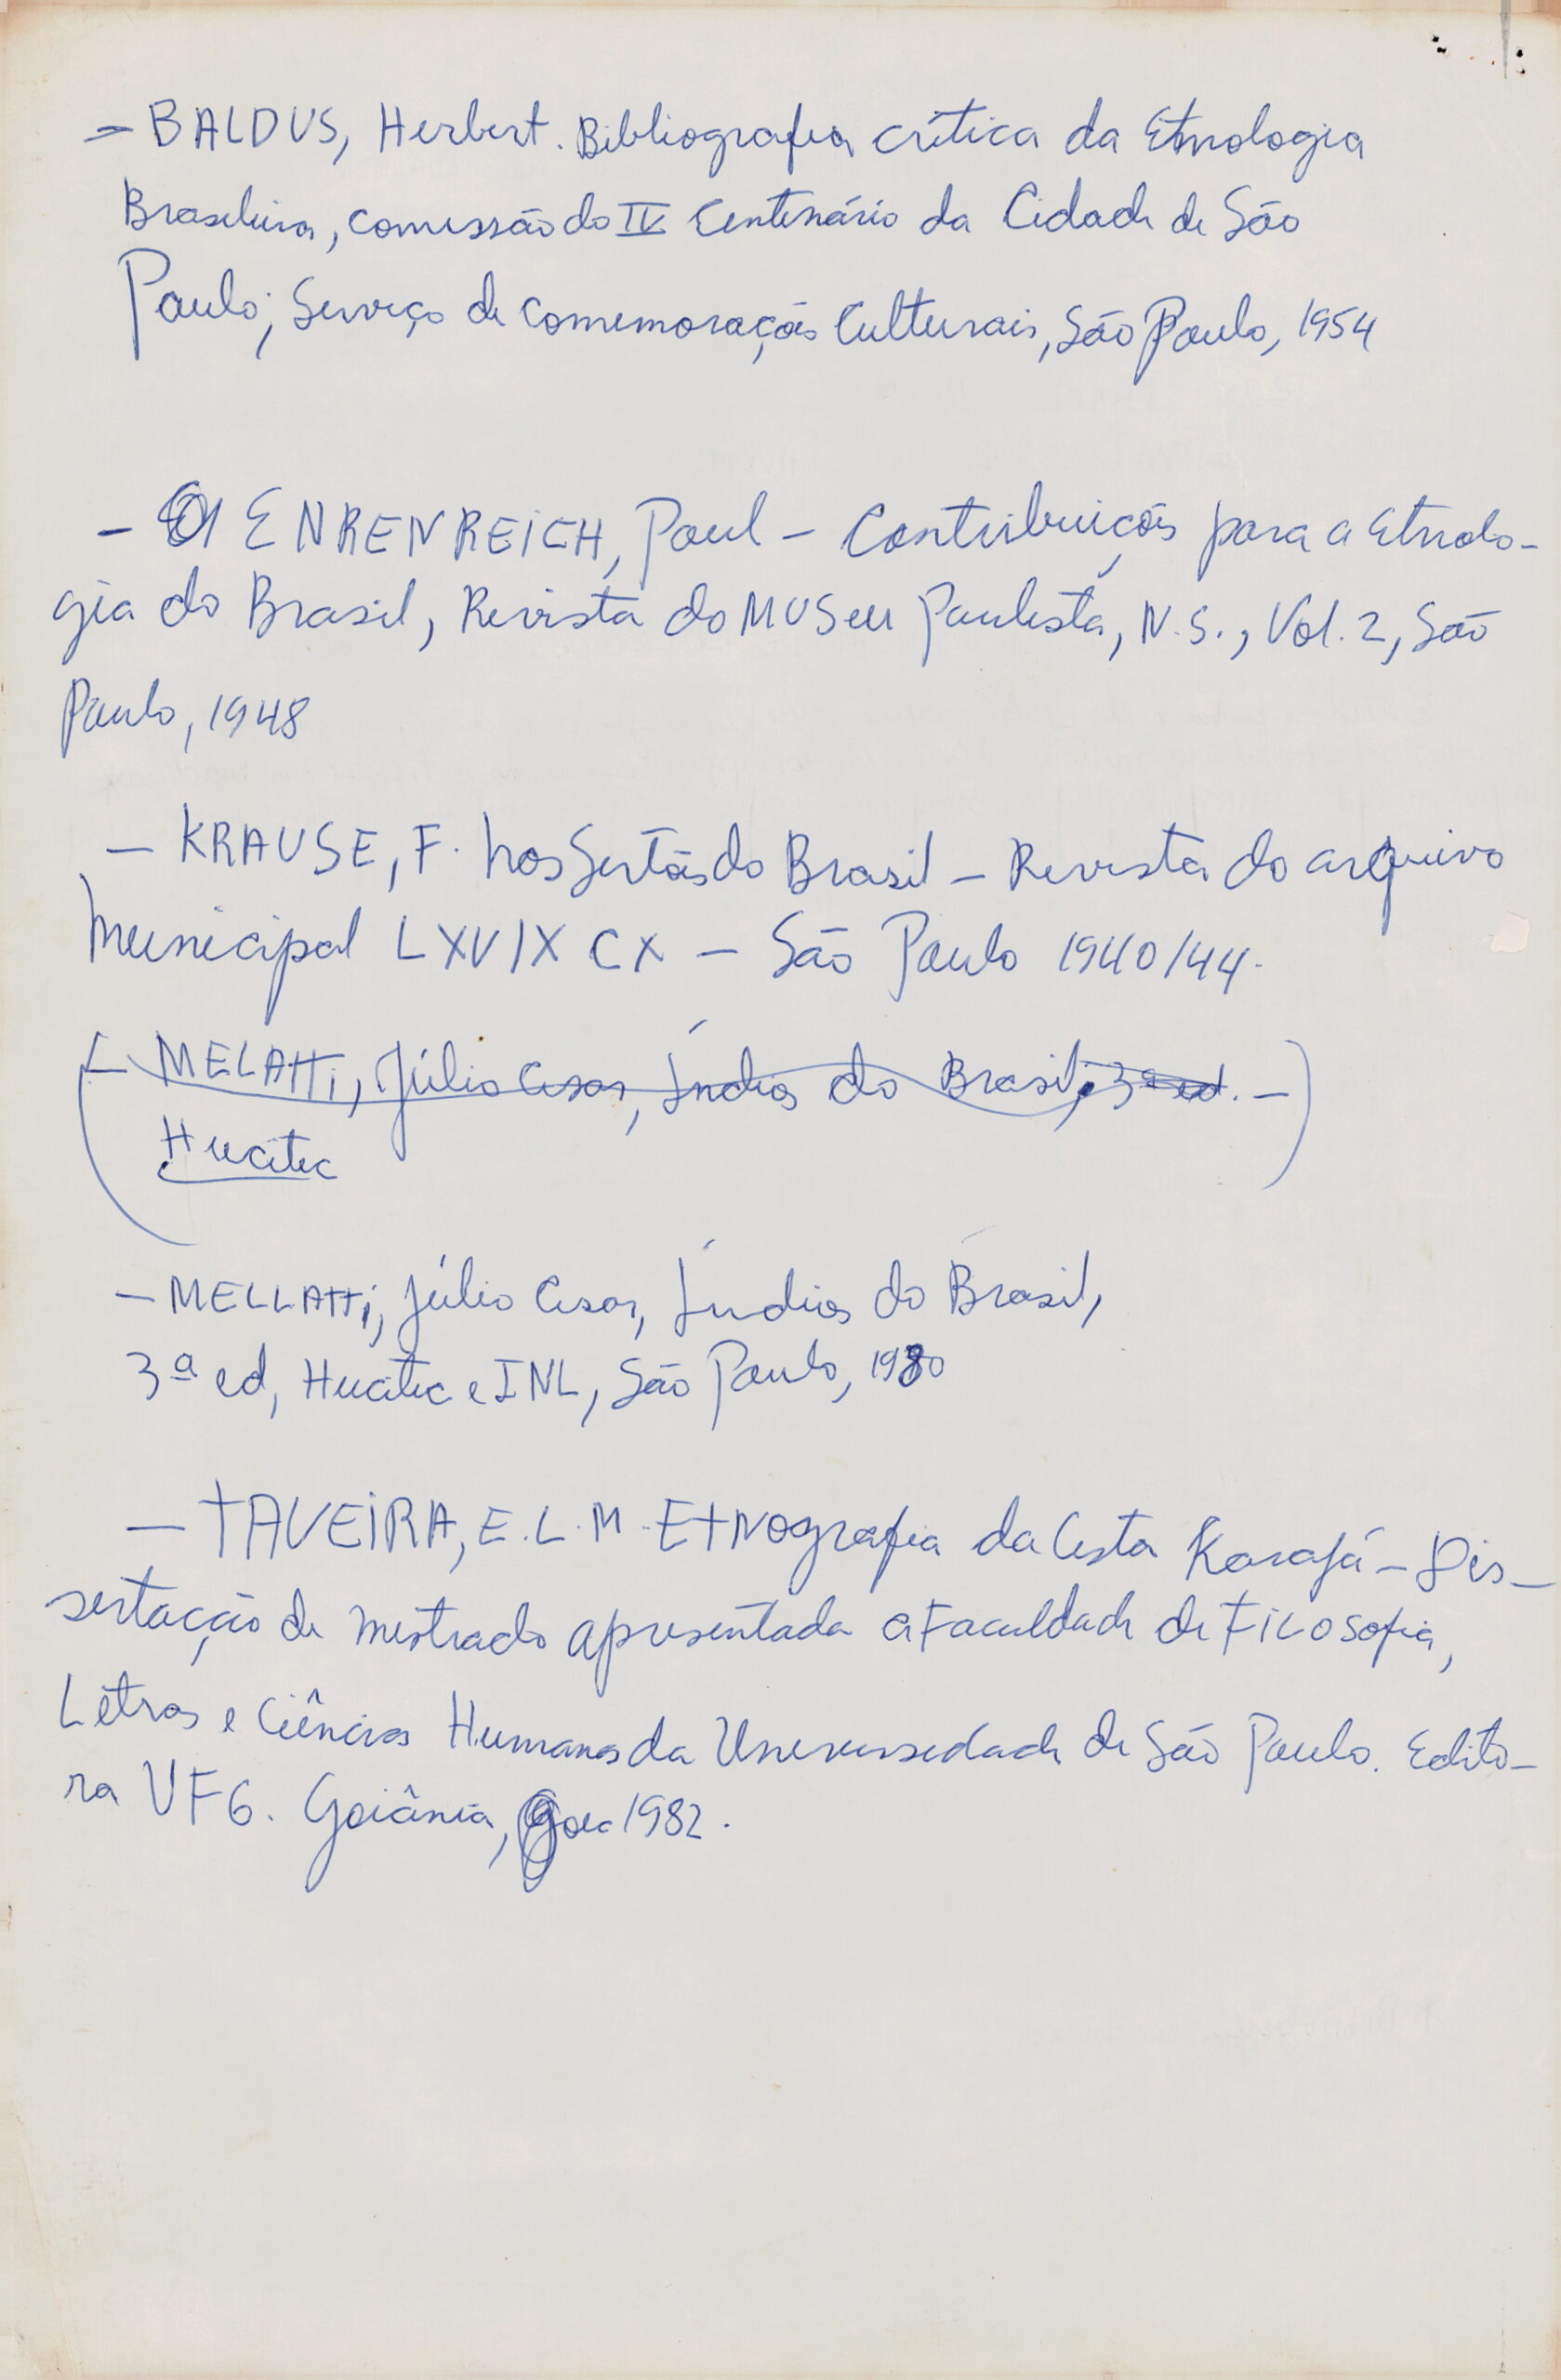 - BALDUS, Herbert. Bibliografia crítica da Etnologia
Brasileira, comissão do IV Centenário da Cidade de São
Paulo; Serviço de Comemorações Culturais, São Paulo, 1954
- ENRENREICH, Paul - Contribuições para a Etnolo-
gia do Brasil, Revista do Museu Paulista, N.S., Vol. 2, São
Paulo, 1948
- KRAUSE, F. Nos Sertões do Brasil - Revista do arquivo
Municipal LXVIX CX - São Paulo 1940/44.
(- MELATTI, Júlio Cesar, Índios do Brasil, 3ª ed. -)
Hucitec
- MELLATTI, Júlio Cesar, Índios do Brasil,
3ª ed, Hucitec e INL, São Paulo, 1980
- TAVEIRA, E.L.M. Etnografia da Cesta Karajá - Dis-
sertação de mestrado apresentada a Faculdade de Filosofia,
Letras e Ciências Humanas da Universidade de São Paulo. Edito-
ra UFG. Goiânia, 1982.